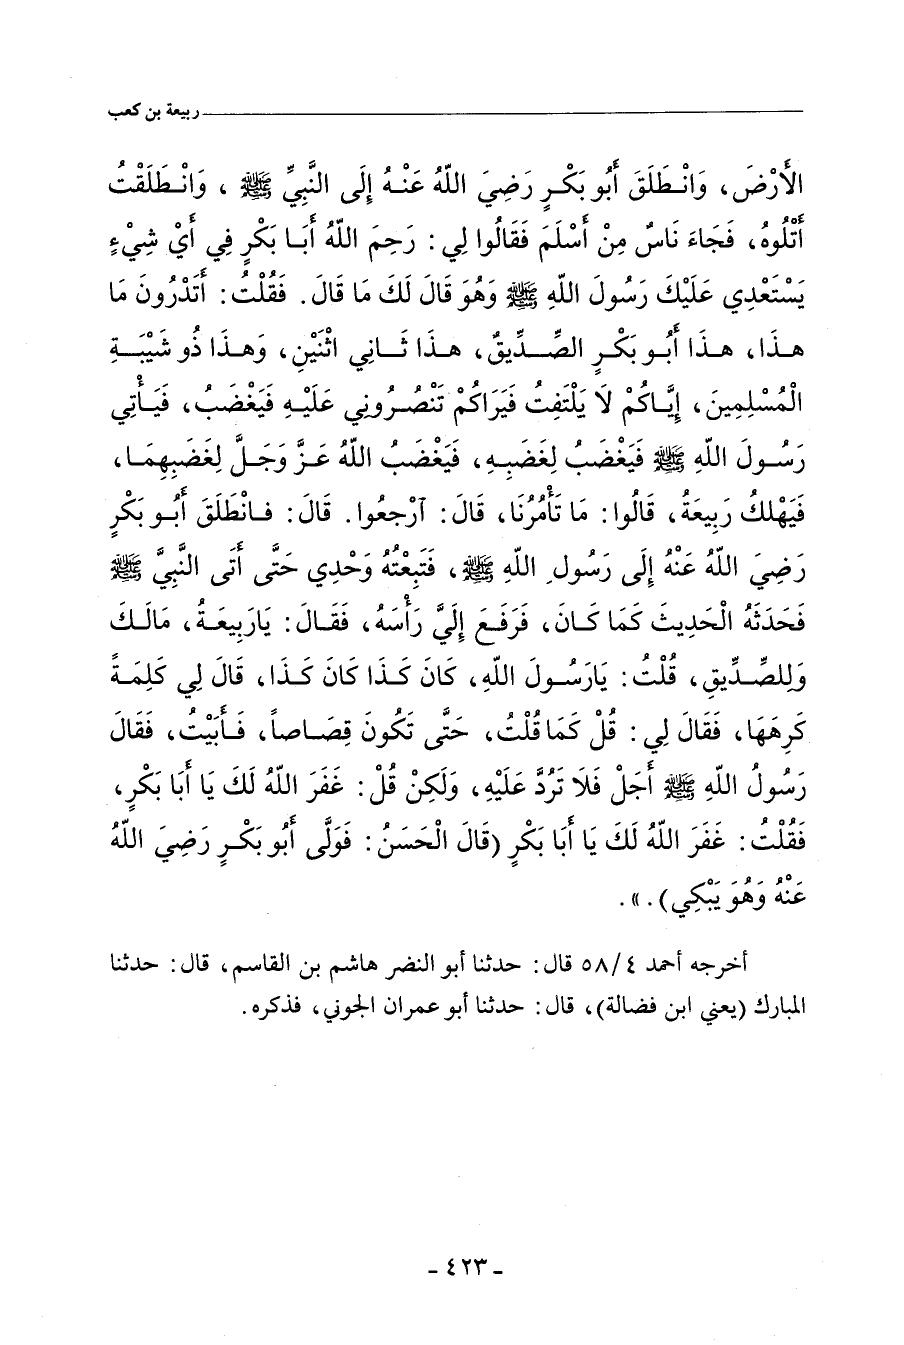 ربيعة بن كعب
الأَرْضَ، وَانْطَلَقَ أَبُو بَكْرٍ رَضِيَ اللّهُ عَنْهُ إِلَى النَّبِيِّ ﷺ ، وَانْطَلَقْتُ
أَتْلُوهُ، فَجَاءَ نَاسٌ مِنْ أَسْلَمَ فَقَالُوا لِي: رَحِمَ اللّهُ أَبَا بَكْرٍ فِي أَيْ شِيْءٍ
يَسْتَعْدِي عَلَيْكَ رَسُولَ اللّهِ ﷺ وَهُوَ قَالَ لَكَ مَا قَالَ. فَقُلْتُ: أَتَدْرُونَ مَا
هذَا، هذَا أَبُو بَكْرٍ الصِّدِّيقُ، هذَا ثَانِي اثْنَيْنِ، وَهذَا ذُو شَيْبَةِ
الْمُسْلِمِينَ، إِيَّاكُمْ لَا يَلْتَفِتُ فَيَرَاكُمْ تَنْصُرُونِي عَلَيْهِ فَيَغْضَبُ، فَيَأْتِي
رَسُولَ اللّهِ ﷺ فَيَغْضَبُ لِغَضَبِهِ، فَيَغْضَبُ اللّهُ عَزَّ وَجَلَّ لِغَضَبِهِمَا،
فَيَهْلِكُ رَبِيعَةُ، قَالُوا: مَا تَأْمُرُنَا، قَالَ: آرْجِعُوا. قَالَ: فَانْطَلَقَ أَبُو بَكْرٍ
رَضِيَ اللّهُ عَنْهُ إِلَى رَسُولِ اللّهِ ﷺ، فَتَبِعْتُهُ وَحْدِي حَتَّى أَتَى النَّبِيَّ ﷺ
فَحَدَثَهُ الْحَدِيثَ كَمَا كَانَ، فَرَفَعَ إِلَيَّ رَأْسَهُ، فَقَالَ: يَارَبِيعَةُ، مَالَكَ
وَلِلصِّدِّيقِ، قُلْتُ: يَارَسُولَ اللّهِ، كَانَ كَذَا كَانَ كَذَا، قَالَ لِي كَلِمَةً
كَرِهَهَا، فَقَالَ لِي: قُلْ كَمَا قُلْتُ، حَتَّى تَكُونَ قِصَاصاً، فَأَبَيْتُ، فَقَالَ
رَسُولُ اللّهِ ﷺ أَجَلْ فَلَا تَرُدَّ عَلَيْهِ، وَلَكِنْ قُلْ: غَفَرَ اللّهُ لَكَ يَا أَبَا بَكْرٍ،
فَقُلْتُ: غَفَرَ اللّهُ لَكَ يَا أَبَا بَكْرٍ (قَالَ الْحَسَنُ: فَوَلَّى أَبُو بَكْرٍ رَضِيَ اللّهُ
عَنْهُ وَهُوَ يَبْكِي).».
أخرجه أحمد ٤/٥٨ قال: حدثنا أبو النضر هاشم بن القاسم، قال: حدثنا
المبارك (يعني ابن فضالة)، قال: حدثنا أبو عمران الجوني، فذكره.
- ٤٢٣ -